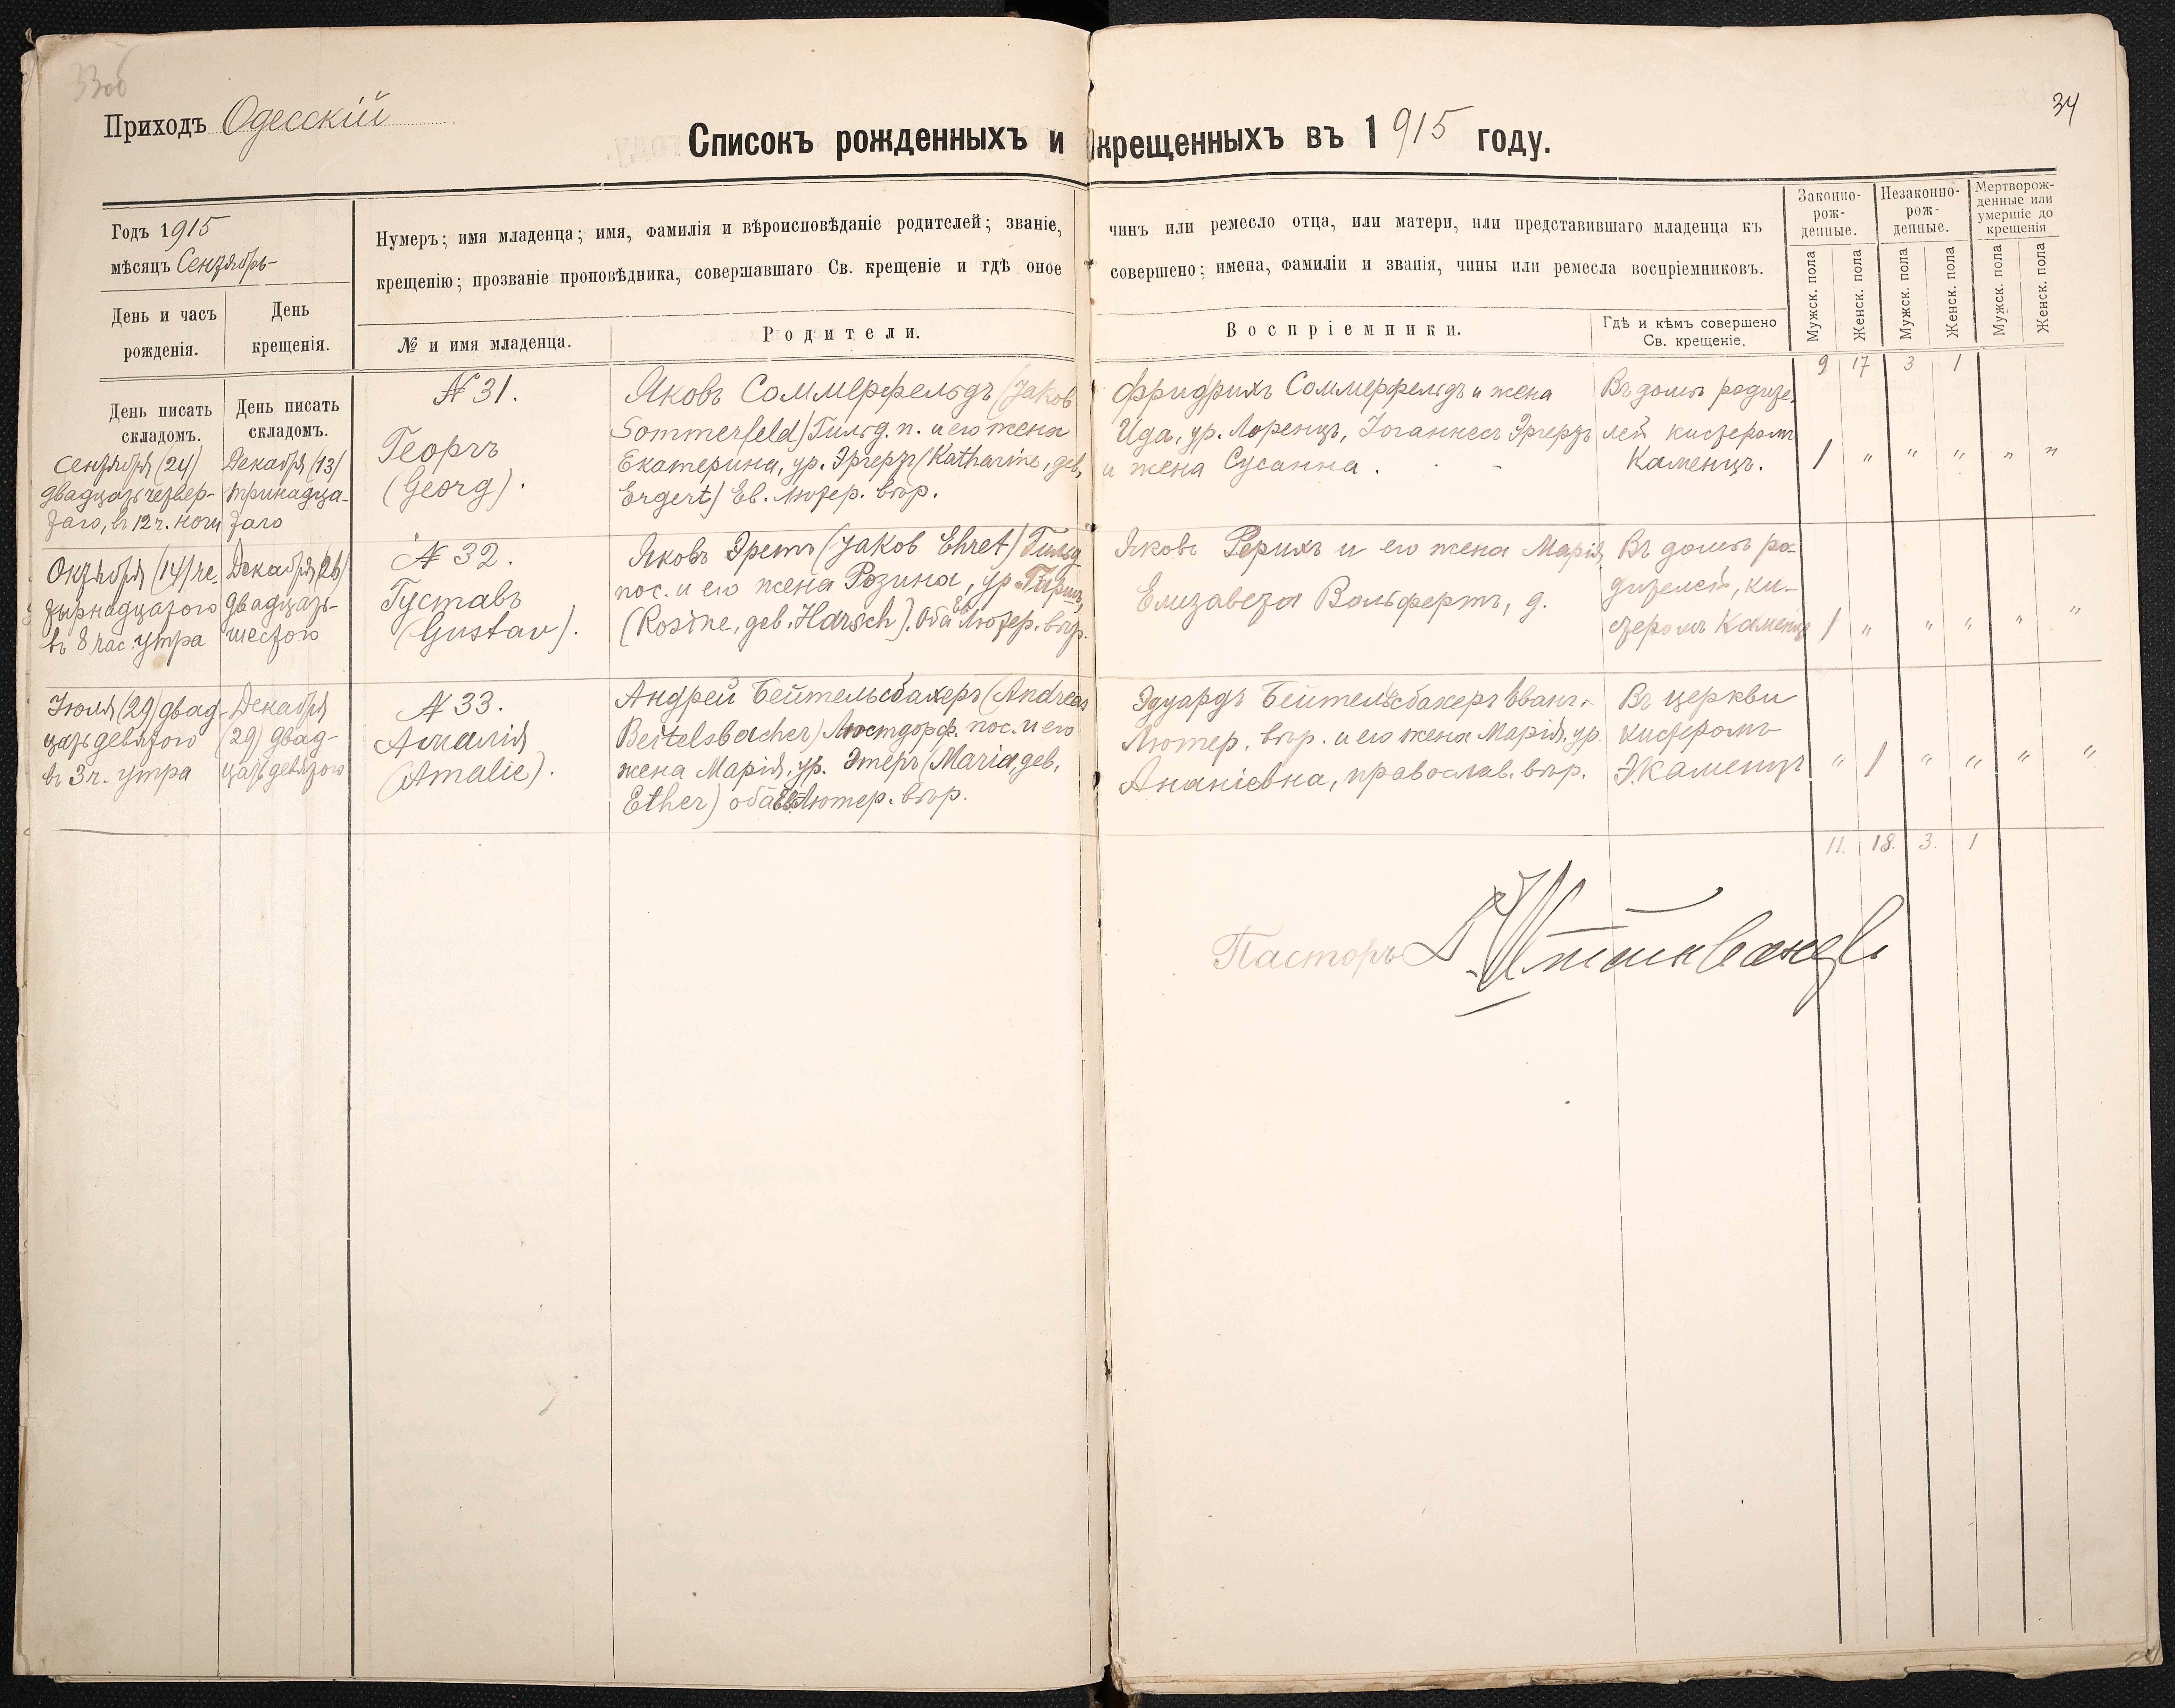 33об
34
Приходъ Одесскій
Списокъ рожденныхъ и окрещенныхъ въ 1915 году.
Годъ 1915
мѣсяцъ Сентябрь
День и часъ рожденія.
День крещенія.
Нумеръ; имя младенца; имя, фамилія и вѣроисповѣданіе родителей; званіе, чинъ или ремесло отца, или матери, или представившаго младенца къ
крещенію; прозваніе проповѣдника, совершавшаго Св. крещеніе и гдѣ оное совершено; имена, фамиліи и званія, чины или ремесла воспріемниковъ.
№ и имя младенца.
Родители.
Воспріемники.
Гдѣ и кѣмъ совершено
Св. крещеніе.
Законно-
рож-
денные.
Незаконно-
рож-
денные.
Мертворож-
денные или
умершіе до
крещенія
Мужск. пола
Женск. пола
Мужск. пола
Женск. пола
Мужск. пола
Женск. пола
9 17 3 1
День писать
складомъ.
День писать
складомъ.
Сентября (24)
двадцать четвер-
таго, въ 12 ч. ночи
Декабря (13)
тринадца-
таго
№ 31.
Георгъ
(Georg).
Яковъ Соммерфельдъ (Jakob
Sommerfeld) Гильд. п. и его жена
Екатерина, ур. Эргертъ (Katharine, geb.
Ergert) Ев. Лютер. вѣр.
Фридрихъ Соммерфельдъ и жена
Ида, ур. Лоренцъ, Іоганнесъ Эргертъ
и жена Сусанна.
Въ домѣ родите-
лей кистеромъ
Каменцъ.
1 " " " " "
Октября (14) че-
тырнадцатого
въ 8 час. утра
Декабря (26)
двадцать-
шестого
№ 32.
Густавъ
(Gustav).
Яковъ Эретъ (Jakob Ehret) Гильд.
пос. и его жена Розина, ур. Гаршъ,
(Rosine, geb. Harsch). Оба Ев. Лютер. вѣр.
Яковъ Рерихъ и его жена Марія,
Елизавета Вольфертъ, д.
Въ домѣ ро-
дителей, ки-
стеромъ Каменцъ
1 " " " " "
Іюля (29) двад-
цать девятого
въ 3 ч. утра
Декабря
(29) двад-
цать девятого
№ 33.
Амалія
(Amalie).
Андрей Бейтельсбахеръ (Andreas
Beitelsbacher) Люстдорф. пос. и его
жена Марія, ур. Этеръ (Maria, geb.
Ether) оба Ев. Лютер. вѣр.
Эдуардъ Бейтельсбахеръ Еванг.-
Лютер. вѣр. и его жена Марія, ур.
Ананіевна, православ. вѣр.
Въ церкви
кистеромъ
Э. Каменцъ
" 1 " " " "
11. 18. 3. 1
Пасторъ